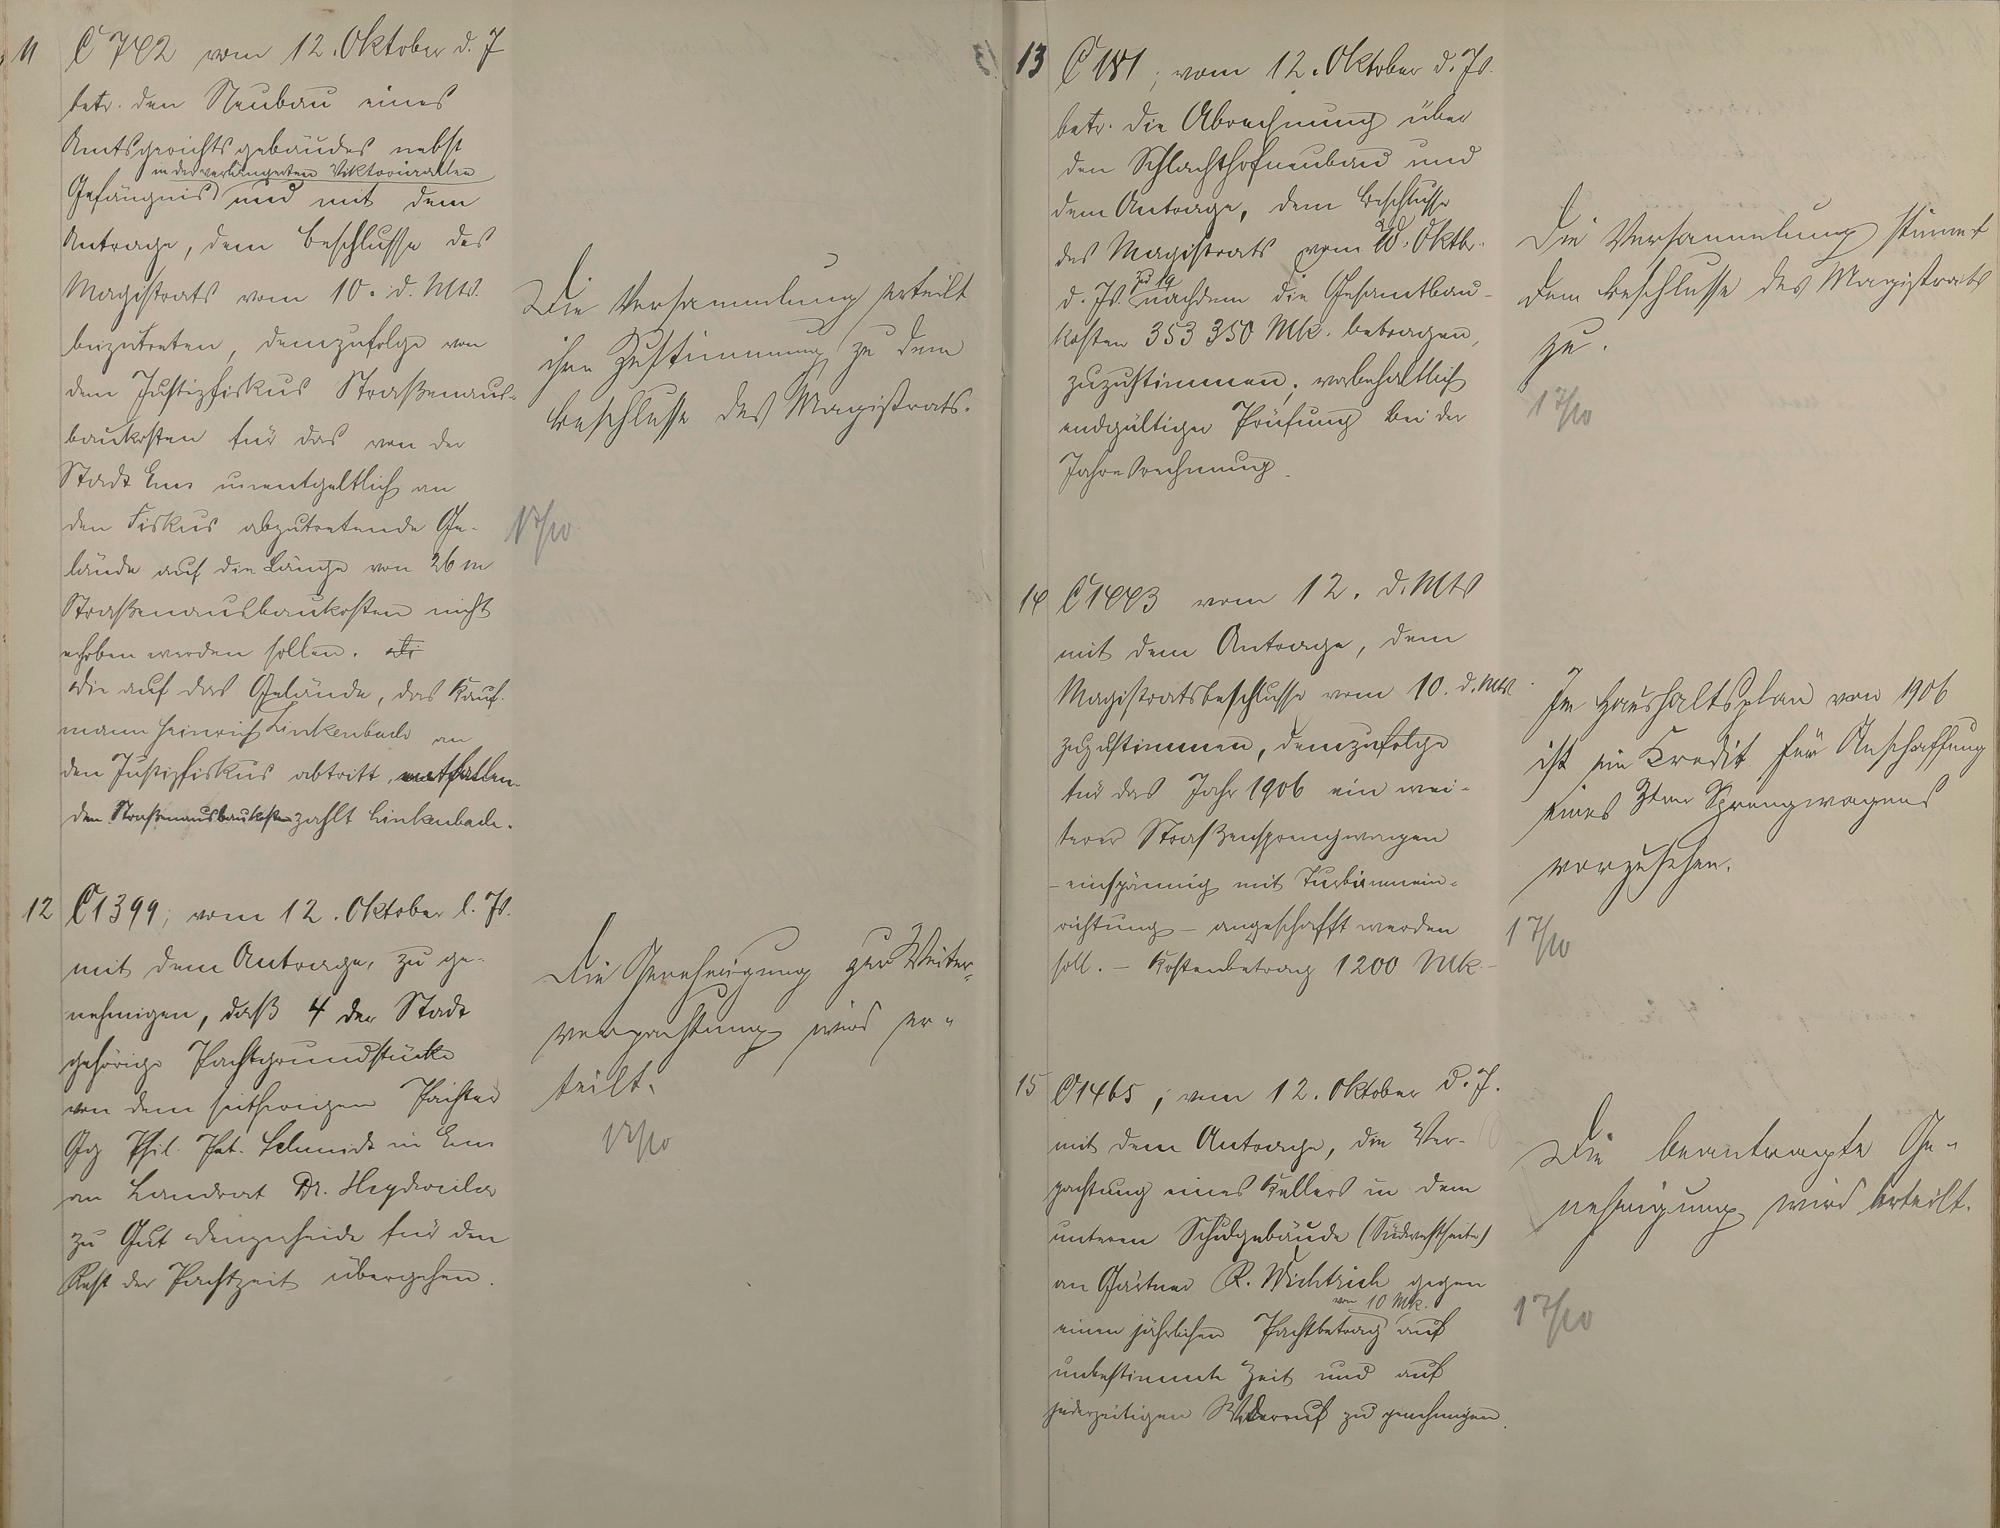 11 C 742 vom 12. Oktober d. J
betr. den Neubau eines
Amtsgerichtsgebäudes nebst
in der verlängerten Viktoriaallee
Gefängnis und mit dem
Antrage, dem Beschlusse des
Magistrats vom 10. d. Mts.
beizutreten, demzufolge von
dem Justizfiskus Straßenaus-
baukosten für das von der
Stadt Ems unentgeltlich an
den Fiskus abzutretende Ge-
lände auf die Länge von 26 m
Straßenausbaukosten nicht
erhoben werden sollen.
Die auf das Gelände, das Kauf-
mann Heinrich Linkenbach an
den Justizfiskus abtritt, entfallen-
den Straßenausbaukosten zahlt Linkenbach.
Die Versammlung erteilt
ihre Zustimmung zu dem
Beschlusse des Magistrats.
17/10
12 C 1399, vom 12. Oktober l. Js.
mit dem Antrage, zu ge-
nehmigen, daß 4 der Stadt
gehörige Pachtgrundstücke
von dem seitherigen Pächter
Gg Phil. Pet. Schmidt in Ems
an Landrat Dr. Heydweiler
zu Gut Denzerheide für den
Rest der Pachtzeit übergehen.
Die Genehmigung zur Weiter-
verpachtung wird er-
teilt.
17/10
13 C 181, vom 12. Oktober d. Js.
betr. die Abrechnung über
den Schlachthofneubau und
dem Antrage, dem Beschlusse
des Magistrats vom 10. Oktbr.
d. Js. nachdem die Gesamtbau-
kosten 353 350 Mk. betragen,
zuzustimmen, vorbehaltlich
endgültiger Prüfung bei der
Jahresrechnung.
Die Versammlung stimmt
dem Beschlusse des Magistrats
zu.
17/10
14 C 1443 vom 12. d. Mts
mit dem Antrage, dem
Magistratsbeschlusse vom 10. d. Mts.
zuzustimmen, demzufolge
für das Jahr 1906 ein wei-
terer Straßensprengwagen
- einspännig mit Turbinenein-
richtung - angeschafft werden
soll. - Kostenbetrag 1200 Mk. -
Im Haushaltsplan von 1906
ist ein Kredit für Anschaffung
eines 3ten Sprengwagens
vorzusehen.
17/10
15 C 1465, vom 12. Oktober d. J.
mit dem Antrage, die Ver-
pachtung eines Kellers in dem
unteren Schulgebäude (Südwestseite)
an Gärtner R. Wichtrich gegen
von 10 Mk.
einen jährlichen Pachtbetrag auf
unbestimmte Zeit und auf
jederzeitigen Widerruf zu genehmigen.
Die beantragte Ge-
nehmigung wird erteilt.
17/10